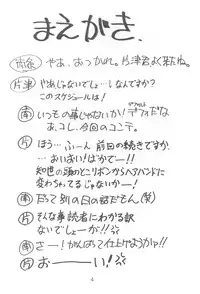 まえがき.
南条 やぁ、おつかれ。片津君よく来たね。
片津 やぁじゃないでしょー!なんですか?
このスケジュールは!
南 いつもの事じゃないか!デフォルトだよ
あ、コレ、今回のコンテ。
片 ほう…ふーん 前回の続きですか…
…おいおい!ばかでー!!
知世の頭のとこリボンからヘアバンドに
変わちゃてるじゃないかー!
南 だって別の日の話だもん(笑)
片 そんな事読者にわかる訳
ないでしょーが!!
南 さー!がんばって仕上げようかァ!!
片 おーーーい!
4